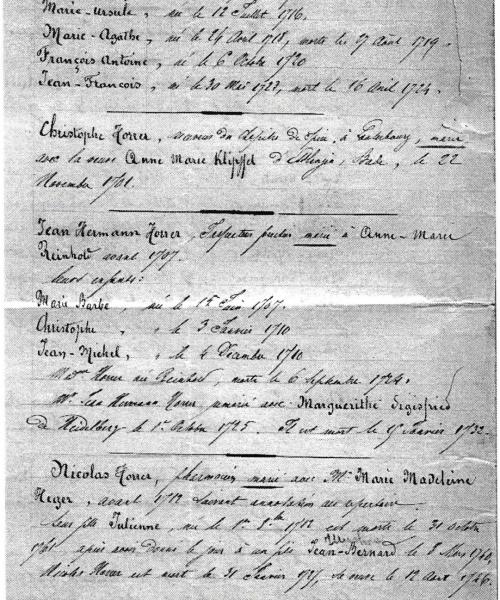 Marie-Ursule, née le 12 Juillet 1716.
Marie-Agathe, née le 24 Avril 1718, morte le 27 Août 1719.
François Antoine, né le 6 Octobre 1720
Jean-François, né le 30 Mai 1723, mort le 16 Avril 1724.
Christophe Horrer, du de à marié
avec la veuve Anne Marie Klipffel d' Bade, le 22
Novembre 1701.
Jean Hermann Horrer, marié à Anne-Marie
Reinhold avant 1707.
leurs enfants:
Marie Barbe, née le 15 Juin 1707.
Christophe " " le 3 Janvier 1710
Jean-Michel, " " le 4 Décembre 1710
Horrer née Reinhold, morte le 6 Septembre 1724.
Mr. Jean Hermann Horrer avec Marguerithe Sigisfried
de Heidelberg le 1er Octobre 1725. Il est mort le Janvier 1732.
Nicolas Horrer, pharmacien marié avec Melle Marie Madeleine
Heger, avant 1712 suivant annotation au répertoire.
Leur fille Julienne, née le 1er 8bre 1712 est morte le 31 octobre
1761 après avoir donné le jour à un fils Jean-Bernard le 8 Mars 1740,
Nicolas Horrer est mort le 31 Janvier 1737, le 12 Août 1746.